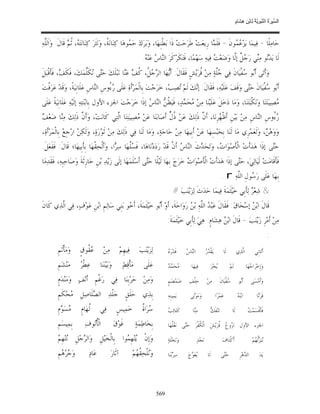 السيرة النبوية لابن هشام
حَامِلًا - فِيمَا يَزْعُمُونَ - فَلَمَّا رِيعَتْ طَرَحَتْ ذَا بَطْنِهَا، وَبَرَكَ حَمُوهَا كِنَانَةُ، وَنَثَرَ كِنَانَتَهُ، ثُمَّ قَالَ وَاللَّهِ
لَا يَدْنُو مِنِّي رَجُلٌ إلَّا وَضَعْتُ فِيهِ سَهْمًا، فَتَكَرْكَرَ النَّاسُ عَنْهُ
وَأَتَى أَبُو سُفْيَانَ فِي جُلَّةٍ مِنْ قُرَيْشٍ فَقَالَ أَيُّهَا الرَّجُلُ، كُفَّ عَنَّا نَبْلَكَ حَتَّى نُكَلِّمَكَ، فَكَفَّ، فَأَقْبَلَ
أَبُو سُفْيَانَ حَتَّى وَقَفَ عَلَيْهِ، فَقَالَ إنَّكَ لَمْ تُصِبْ، خَرَجْتَ بِالْمَرْأَةِ عَلَى رُءُوسِ النَّاسِ عَلَانِيَةً، وَقَدْ عَرَفْتَ
مُصِيبَتَنَا وَنَكْبَتَنَا، وَمَا دَخَلَ عَلَيْنَا مِنْ مُحَمَّدٍ، فَيَظُنُّ النَّاسُ إذَا خَرَجَتْ الجزء الأول بِابْنَتِهِ إلَيْهِ عَلَانِيَةً عَلَى
رُءُوسِ النَّاسِ مِنْ بَيْنِ أَظْهُرِنَا، أَنَّ ذَلِكَ عَنْ ذُلٍّ أَصَابَنَا عَنْ مُصِيبَتِنَا الَّتِي كَانَتْ، وَأَنَّ ذَلِكَ مِنَّا ضَعْفٌ
وَوَهْنٌ، وَلَعَمْرِي مَا لَنَا بِحَبْسِهَا عَنْ أَبِيهَا مِنْ حَاجَةٍ، وَمَا لَنَا فِي ذَلِكَ مِنْ ثَوْرَةٍ، وَلَكِنْ ارْجِعْ بِالْمَرْأَةِ،
حَتَّى إذَا هَدَأَتْ الْأَصْوَاتُ، وَتَحَدَّثَ النَّاسُ أَنْ قَدْ رَدَدْنَاهَا، فَسُلَّهَا سِرًّا، وَأَلْحِقْهَا بِأَبِيهَا، قَالَ فَفَعَلَ
فَأَقَامَتْ لَيَالِيَ، حَتَّى إذَا هَدَأَتْ الْأَصْوَاتُ خَرَجَ بِهَا لَيْلًا حَتَّى أَسْلَمَهَا إلَى زَيْدِ بْنِ حَارِثَةَ وَصَاحِبِهِ، فَقَدِمَا
بِهَا عَلَى رَسُولِ اللَّهِ
// شِعْرٌ لِأَبِي خَيْثَمَةَ فِيمَا حَدَثَ لِزَيْنَبَ //
قَالَ ابْنُ إسْحَاقَ فَقَالَ عَبْدُ اللَّهِ بْنُ رَوَاحَةَ، أَوْ أَبُو خَيْثَمَةَ، أَخُو بَنِي سَالِمِ ابْنِ عَوْفٍ، فِي الَّذِي كَانَ
مِنْ أَمْرِ زَيْنَبَ - قَالَ ابْنُ هِشَامٍ هِيَ لِأَبِي خَيْثَمَةَ
أَتَانِي الَّذِي لَا يَقْدُرُ النَّاسُ قَدْرَهُ لِزَيْنَبَ فِيهِمْ مِنْ عُقُوقٍ وَمَأْثَمِ
وَإِخْرَاجُهَا لَمْ يُخْزَ فِيهَا مُحَمَّدٌ عَلَى مَأْقِطٍ وَبَيْنَنَا عِطْرُ مَنْشَمِ
وَأَمْسَى أَبُو سُفْيَانَ مِنْ حِلْفِ ضَمْضَمٍ وَمِنْ حَرْبِنَا فِي رَغْمِ أَنْفٍ وَمَنْدَمِ
قَرَنَّا ابْنَهُ عَمْرًا وَمَوْلَى يَمِينِهِ بِذِي حَلَقٍ جَلْدِ الصَّلَاصِلِ مُحْكَمِ
فَأَقْسَمْتُ لَا تَنْفَكُّ مِنَّا كَتَائِبُ سُرَاةُ خَمِيسٍ فِي لُهَامٍ مُسَوَّمِ
الجزء الأول نَزُوعُ قُرَيْشَ الْكُفْرَ حَتَّى نَعُلَّهَا بِخَاطِمَةٍ فَوْقَ الْأُنُوفِ بِمِيسَمِ
نُنَزِّلُهُمْ أَكْنَافَ نَجْدٍ وَنَخْلَةٍ وَإِنْ يُتْهِمُوا بِالْخَيْلِ وَالرَّجْلِ نُتْهِمْ
يَدَ الدَّهْرِ حَتَّى لَا يُعَوَّجَ سِرْبُنَا وَنُلْحِقُهُمْ آثَارَ عَادٍ وَجُرْهُمِ
569